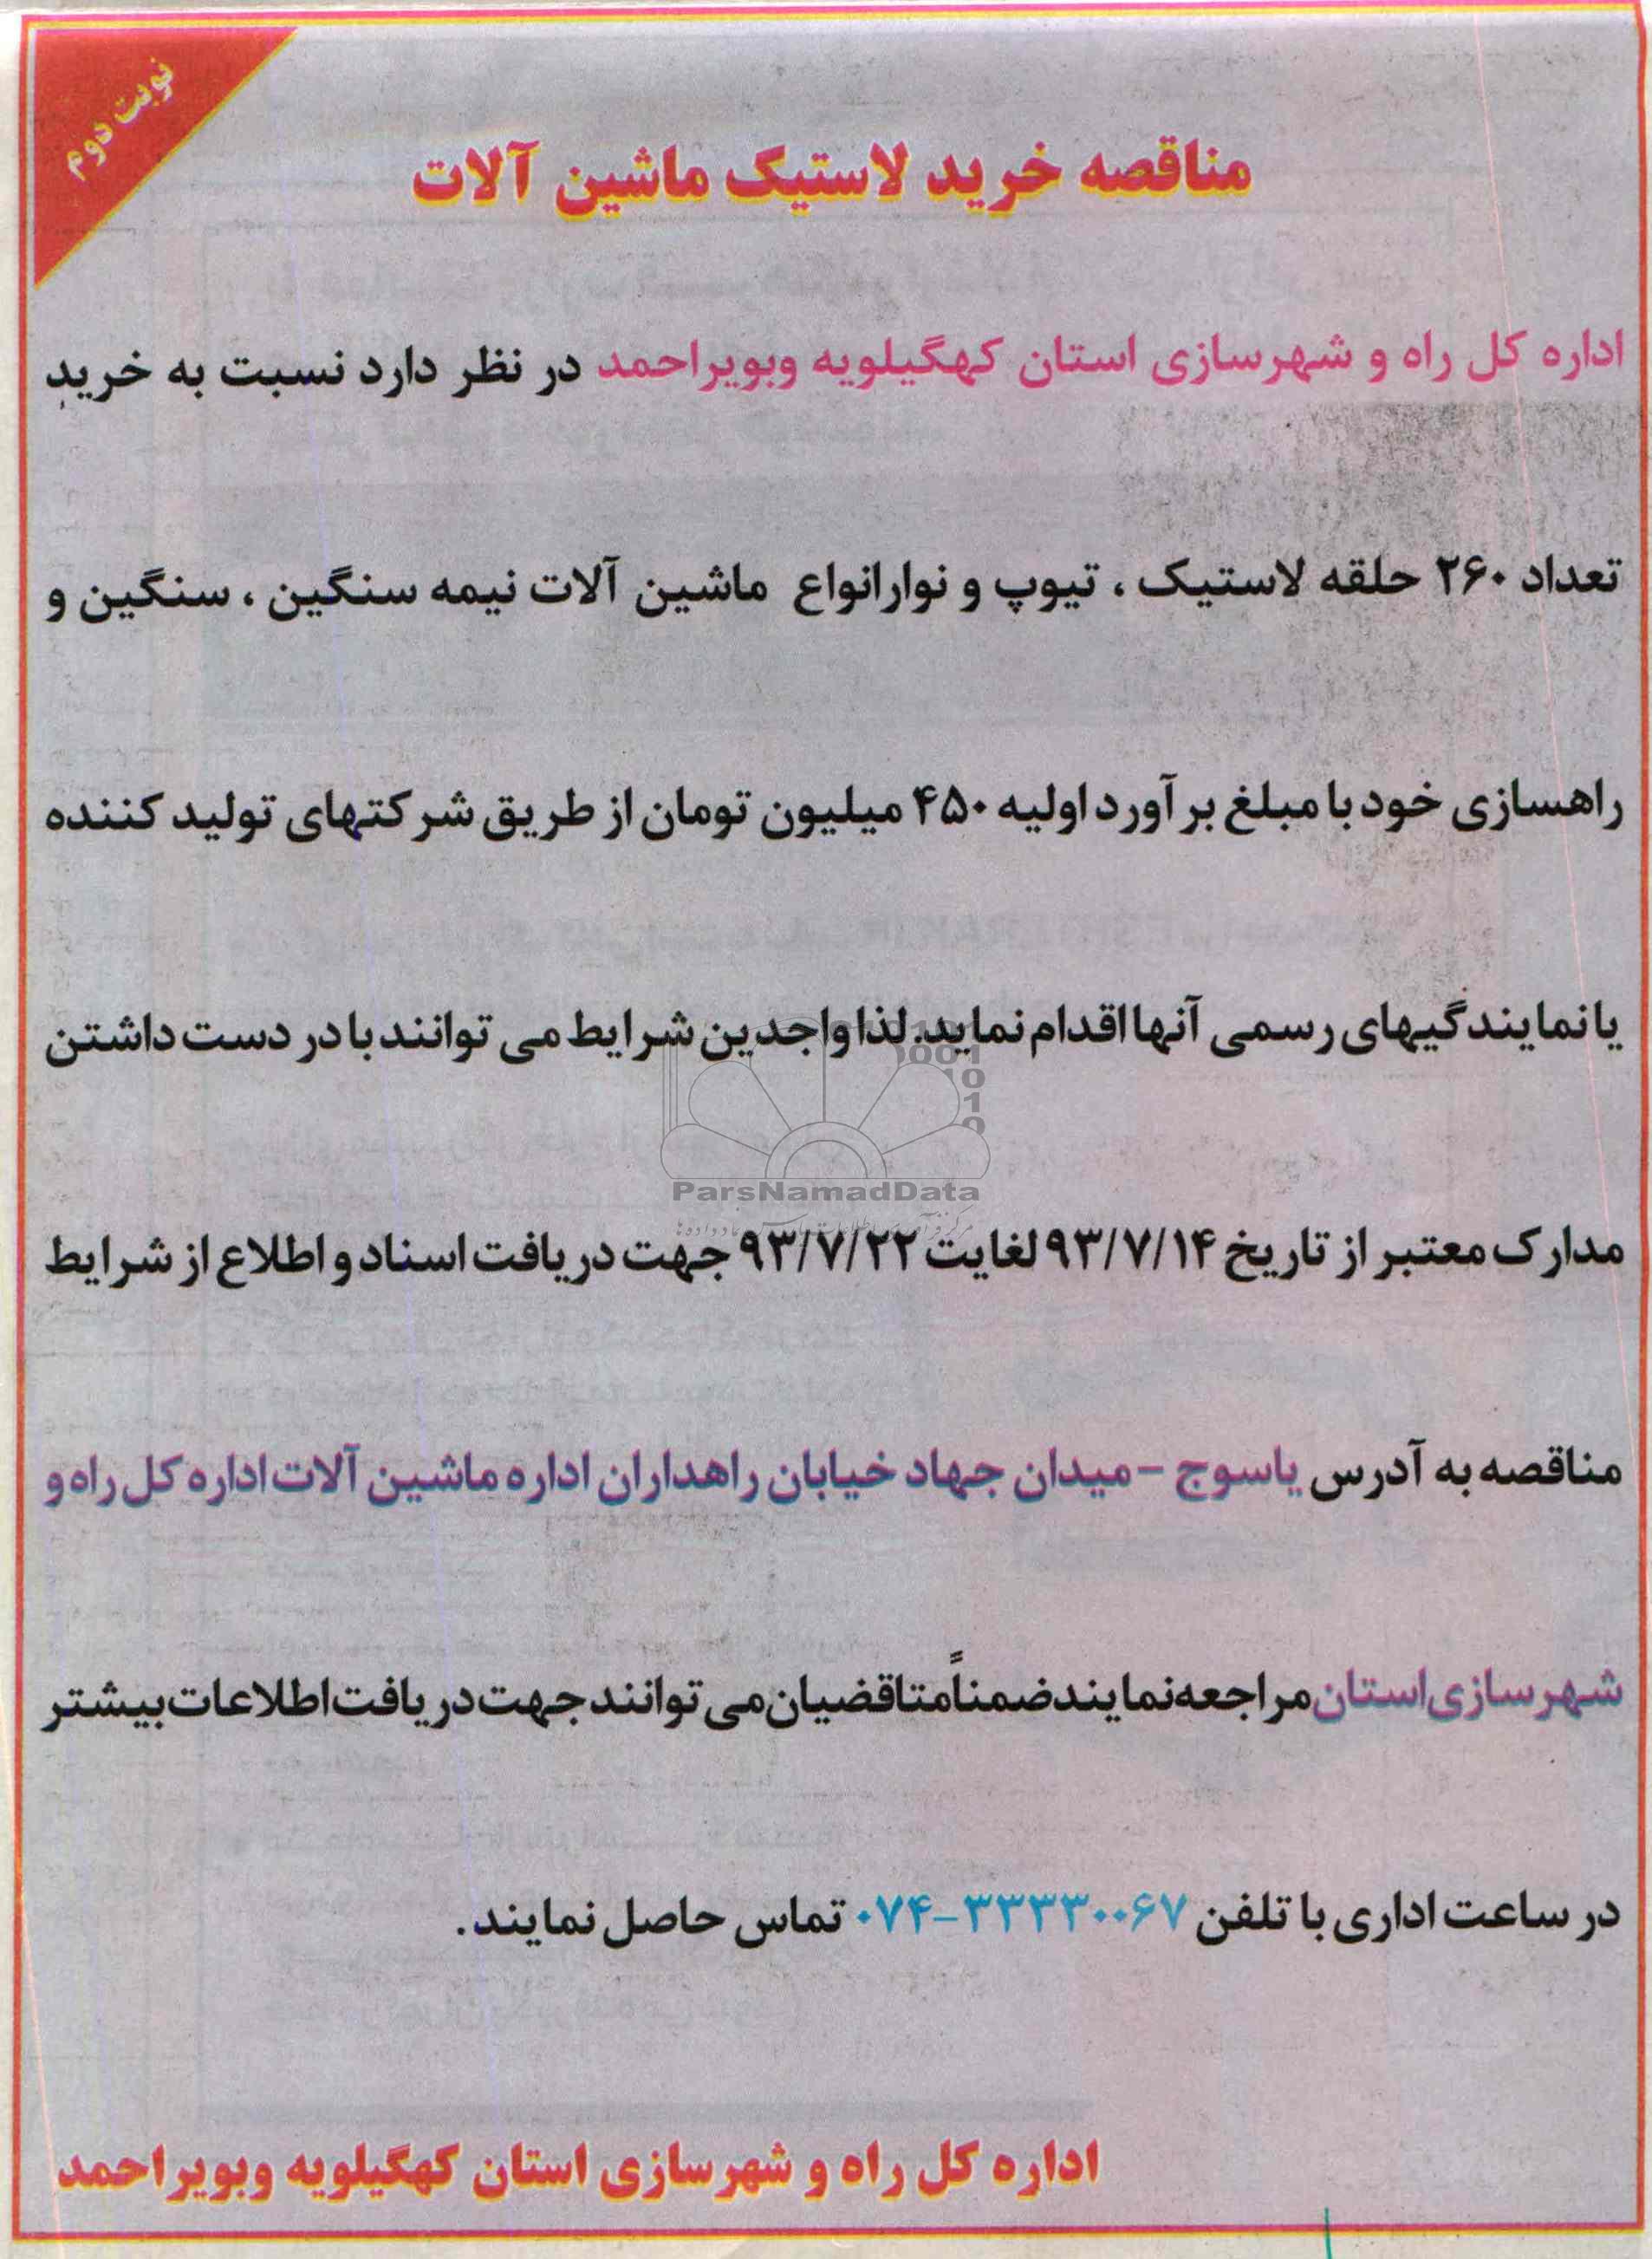 نوبت دوم
مناقصه خرید لاستیک ماشین آلات
اداره کل راه و شهرسازی استان کهگیلویه وبویراحمد در نظر دارد نسبت به خرید
تعداد ۲۶۰ حلقه لاستیک ، تیوپ و نوارانواع ماشین آلات نیمه سنگین ، سنگین و
راهسازی خود با مبلغ برآورد اولیه ۴۵۰ میلیون تومان از طریق شرکتهای تولید کننده
یا نمایندگیهای رسمی آنها اقدام نماید. لذا واجدین شرایط می توانند با در دست داشتن
مدارک معتبر از تاریخ ۹۳/۷/۱۴ لغایت ۹۳/۷/۲۲ جهت دریافت اسناد و اطلاع از شرایط
مناقصه به آدرس یاسوج – میدان جهاد خیابان راهداران اداره ماشین آلات اداره کل راه و
شهرسازی استان مراجعه نمایند ضمناً متاقضیان می توانند جهت دریافت اطلاعات بیشتر
در ساعت اداری با تلفن ۳۳۳۳۰۰۶۷–۰۷۴ تماس حاصل نمایند.
اداره کل راه و شهرسازی استان کهگیلویه وبویراحمد
ParsNamadData